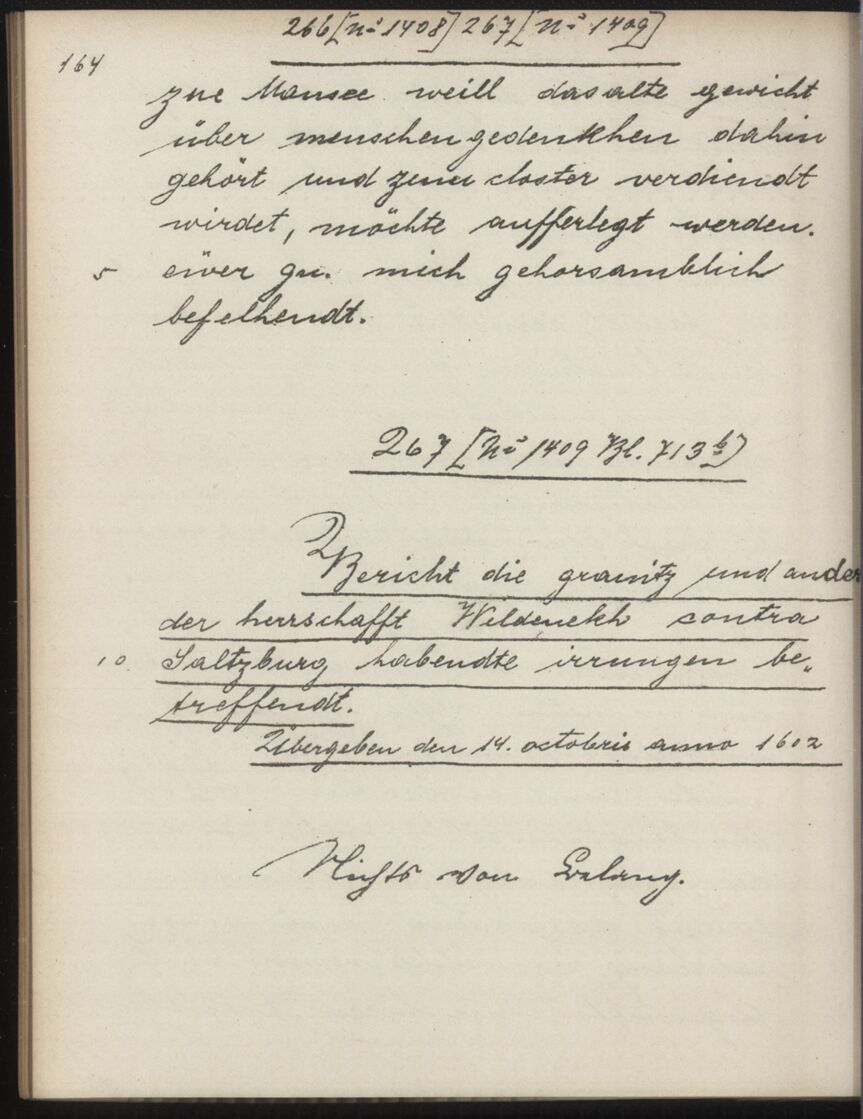 266 [Nº 1408] 267 [Nº 1409]
164
zue Mansee weill das alte gewicht
über menschen gedenkhen dahin
gehört und zum closter verdiendt
wirdet, möchte aufferlegt werden.
5 eüer gn. mich gehorsamblich
befelhendt.
267 [Nº 1409 Bl. 713b]
Bericht die granitz und ander
der herrschafft Wildenekh contra
10 Saltzburg habendte irrungen be„
treffendt.
Übergeben den 14. octobris anno 1602
Nichts von Belang.